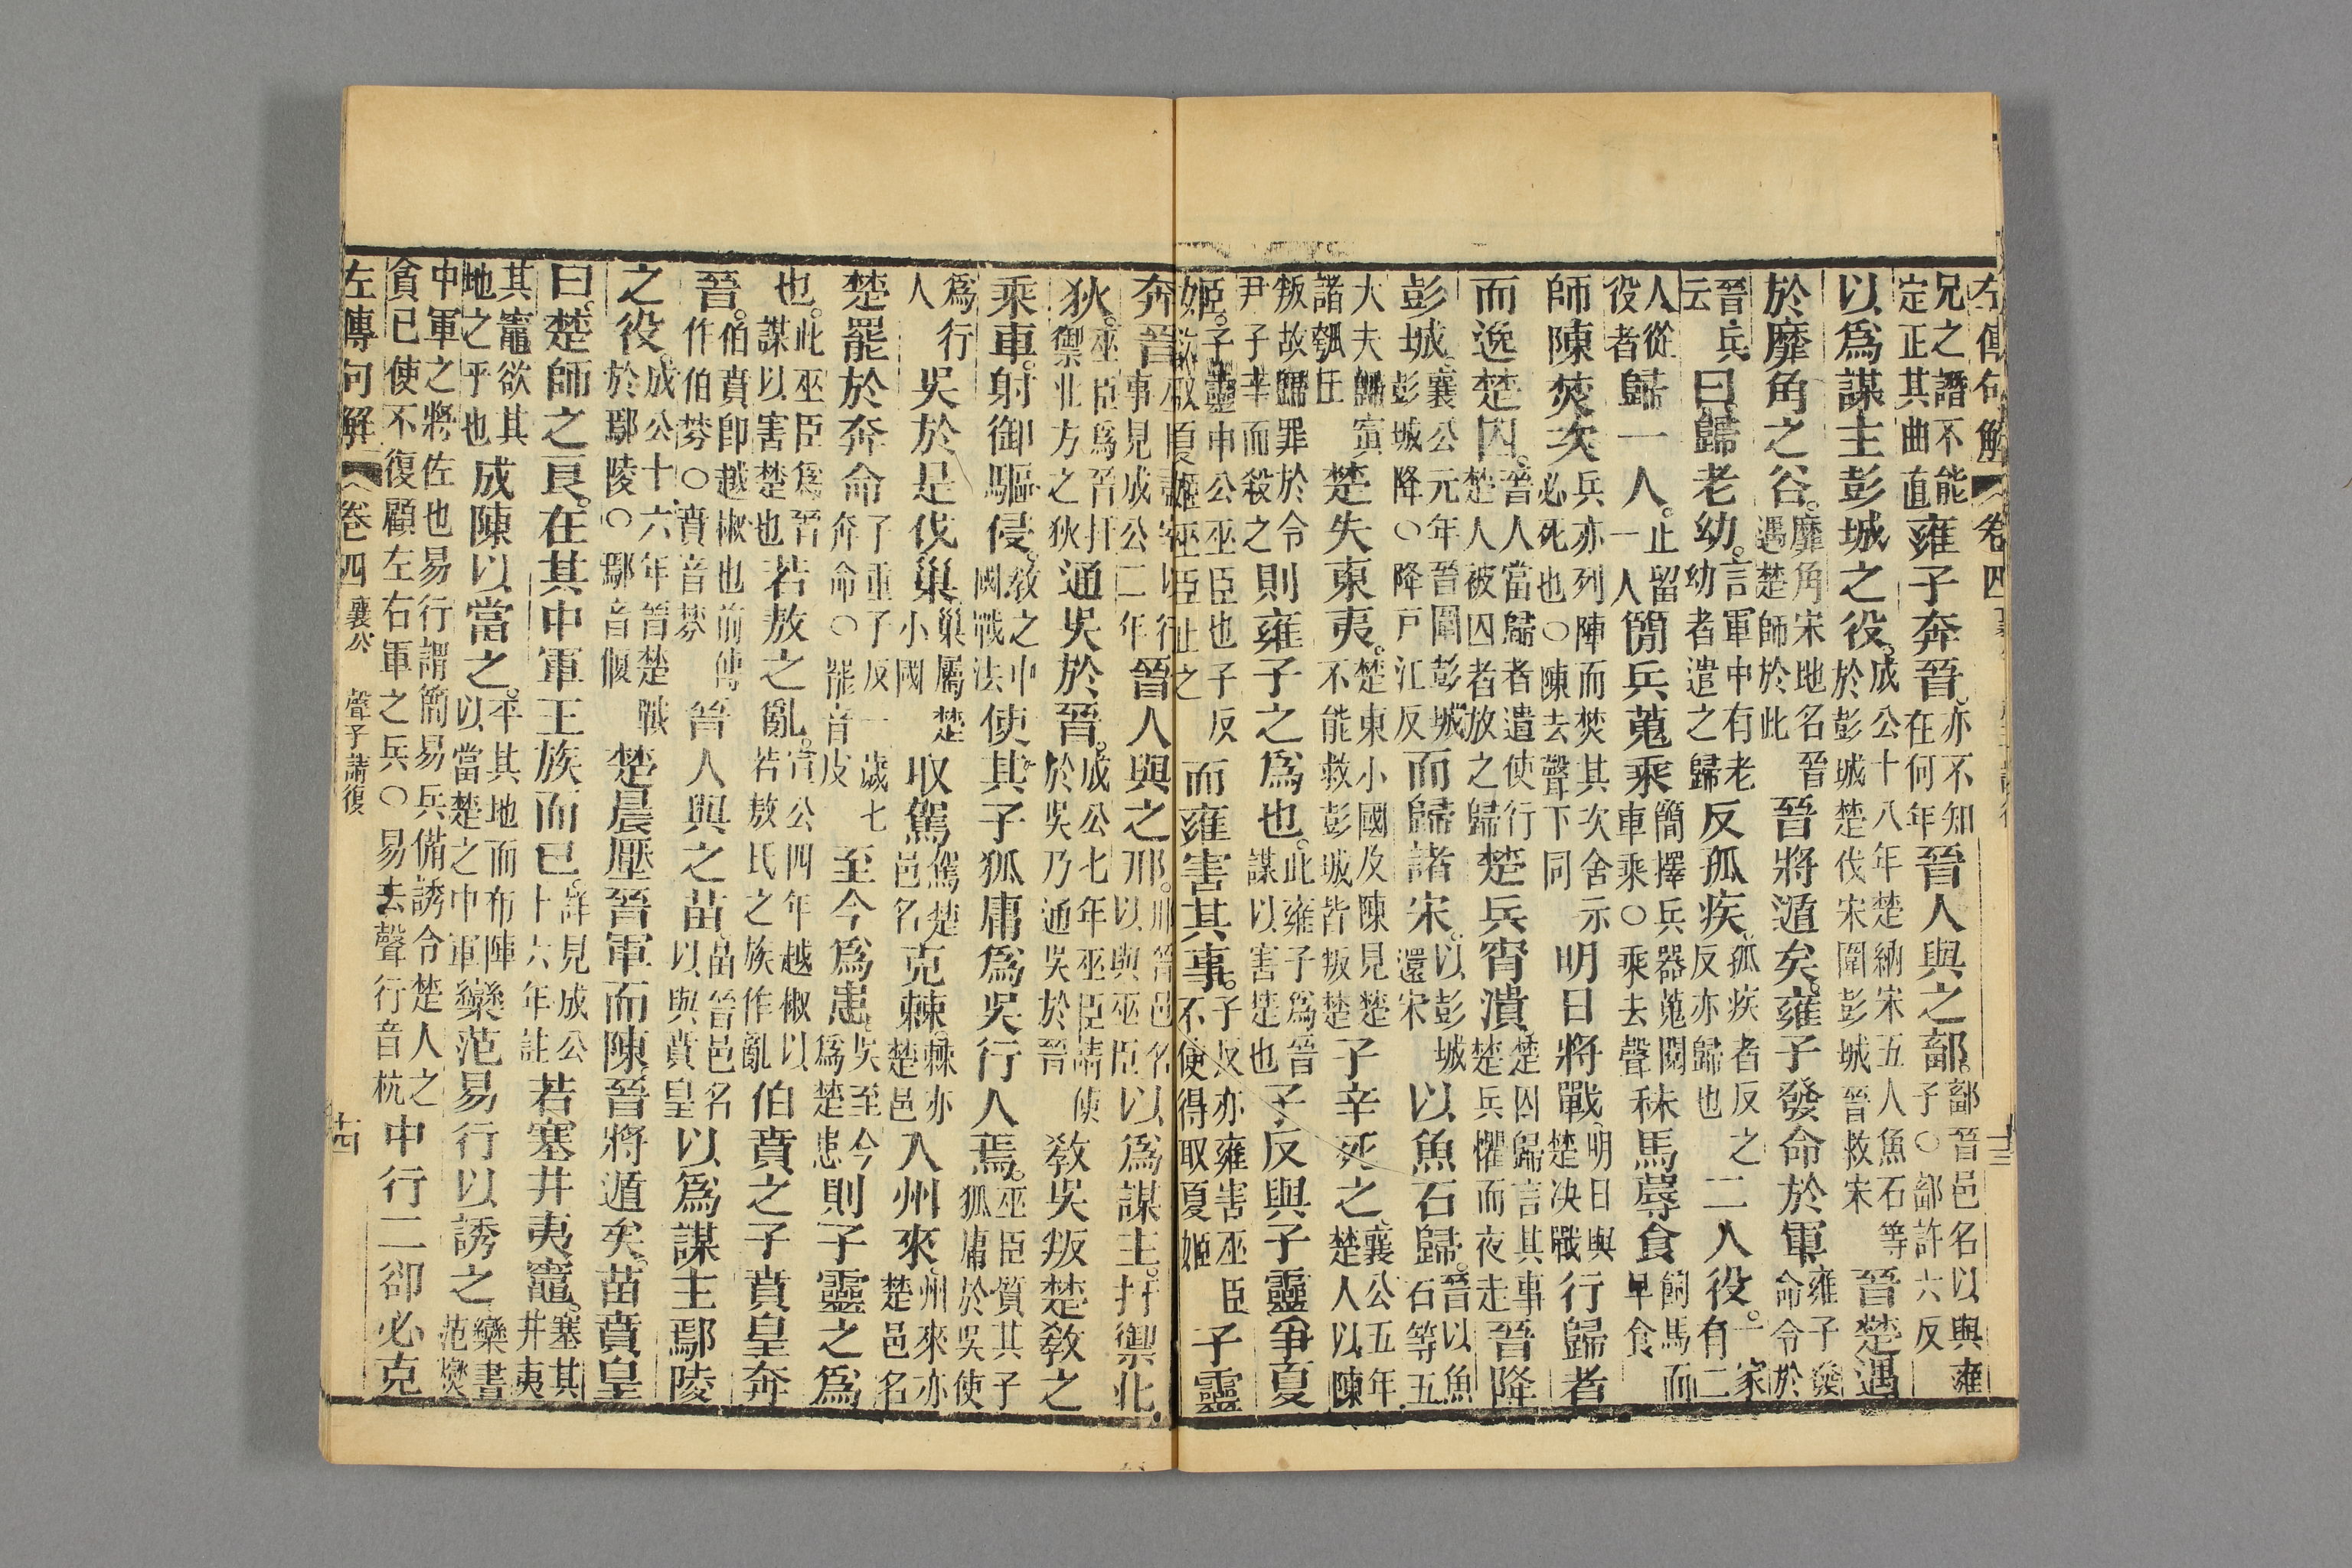 左傳句解 卷四
十三
兄之譖不能定正其曲直雍子奔晉亦不知在何年晉人與之鄐鄐晉邑名以與雍子○鄐許六反
以爲謀主彭城之役成公十八年楚納宋五人魚石等於彭城楚伐宋圍彭城晉救宋晉楚遇
於靡角之谷靡角宋地名晉遇楚師於此晉將遁矣雍子發命於軍雍子發命令於
晉兵云曰歸老幼言軍中有老幼者遣之歸反孤疾孤疾者反之反亦歸也二人役一家有二
人從役者歸一人止留一人簡兵蒐乘簡擇兵器蒐閱車乘○乘去聲秣馬蓐食飼馬而早食
師陳焚次兵亦列陣而焚其次舍示必死也○陳去聲下同明日將戰明日與楚决戰行歸者
而逸楚囚晉人當歸者遣使行楚人被囚者放之歸楚兵宵潰楚囚歸言其事楚兵懼而夜走晉降
彭城襄公元年晉圍彭城彭城降○降戸江反而歸諸宋以彭城還宋以魚石歸晉以魚石等五
大夫歸寘諸瓠丘楚失東夷楚東小國及陳見楚不能救彭城皆叛楚子辛死之襄公五年楚人以陳
叛故歸罪於令尹子辛而殺之則雍子之爲也此雍子爲晉謀以害楚也子反與子靈爭夏
姬子靈申公巫臣也子反欲取夏姬巫臣止之而雍害其事子反亦雍害巫臣不使得取夏姬子靈
奔晉事見成公二年晉人與之邢邢晉邑名以與巫臣以爲謀主扞禦北
狄巫臣爲晉扞禦北方之狄通吳於晉成公七年巫臣請使於吳乃通吳於晉教吳叛楚教之
乘車射御驅侵教之中國戰法使其子狐庸爲吳行人焉巫臣質其子狐庸於吳使
爲行人吳於是伐巢巢屬楚小國取駕駕楚邑名克棘棘亦楚邑入州來州來亦楚邑名
楚罷於奔命子重子反一歲七奔命○罷音皮至今爲患吳至今爲楚患則子靈之爲
也此巫臣爲晉謀以害楚也若敖之亂宣公四年越椒以若敖氏之族作亂伯賁之子賁皇奔
晉伯賁卽越椒也前傳作伯棼○賁音棼晉人與之苗苗晉邑名以與賁皇以爲謀主鄢陵
之役成公十六年晉楚戰於鄢陵○鄢音偃楚晨壓晉軍而陳晉將遁矣苗賁皇
曰楚師之良在其中軍王族而已詳見成公十六年註若塞井夷竈塞其井夷
其竈欲其地之平也成陳以當之平其地而布陣以當楚之中軍欒范易行以誘之欒書范燮
中軍之將佐也易行謂簡易兵備誘令楚人之貪已使不復顧左右軍之兵○易去聲行音杭中行二郤必克
左傳句解 卷四 襄公 聲子請復 十四